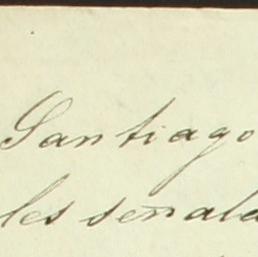 Santiago
les señala